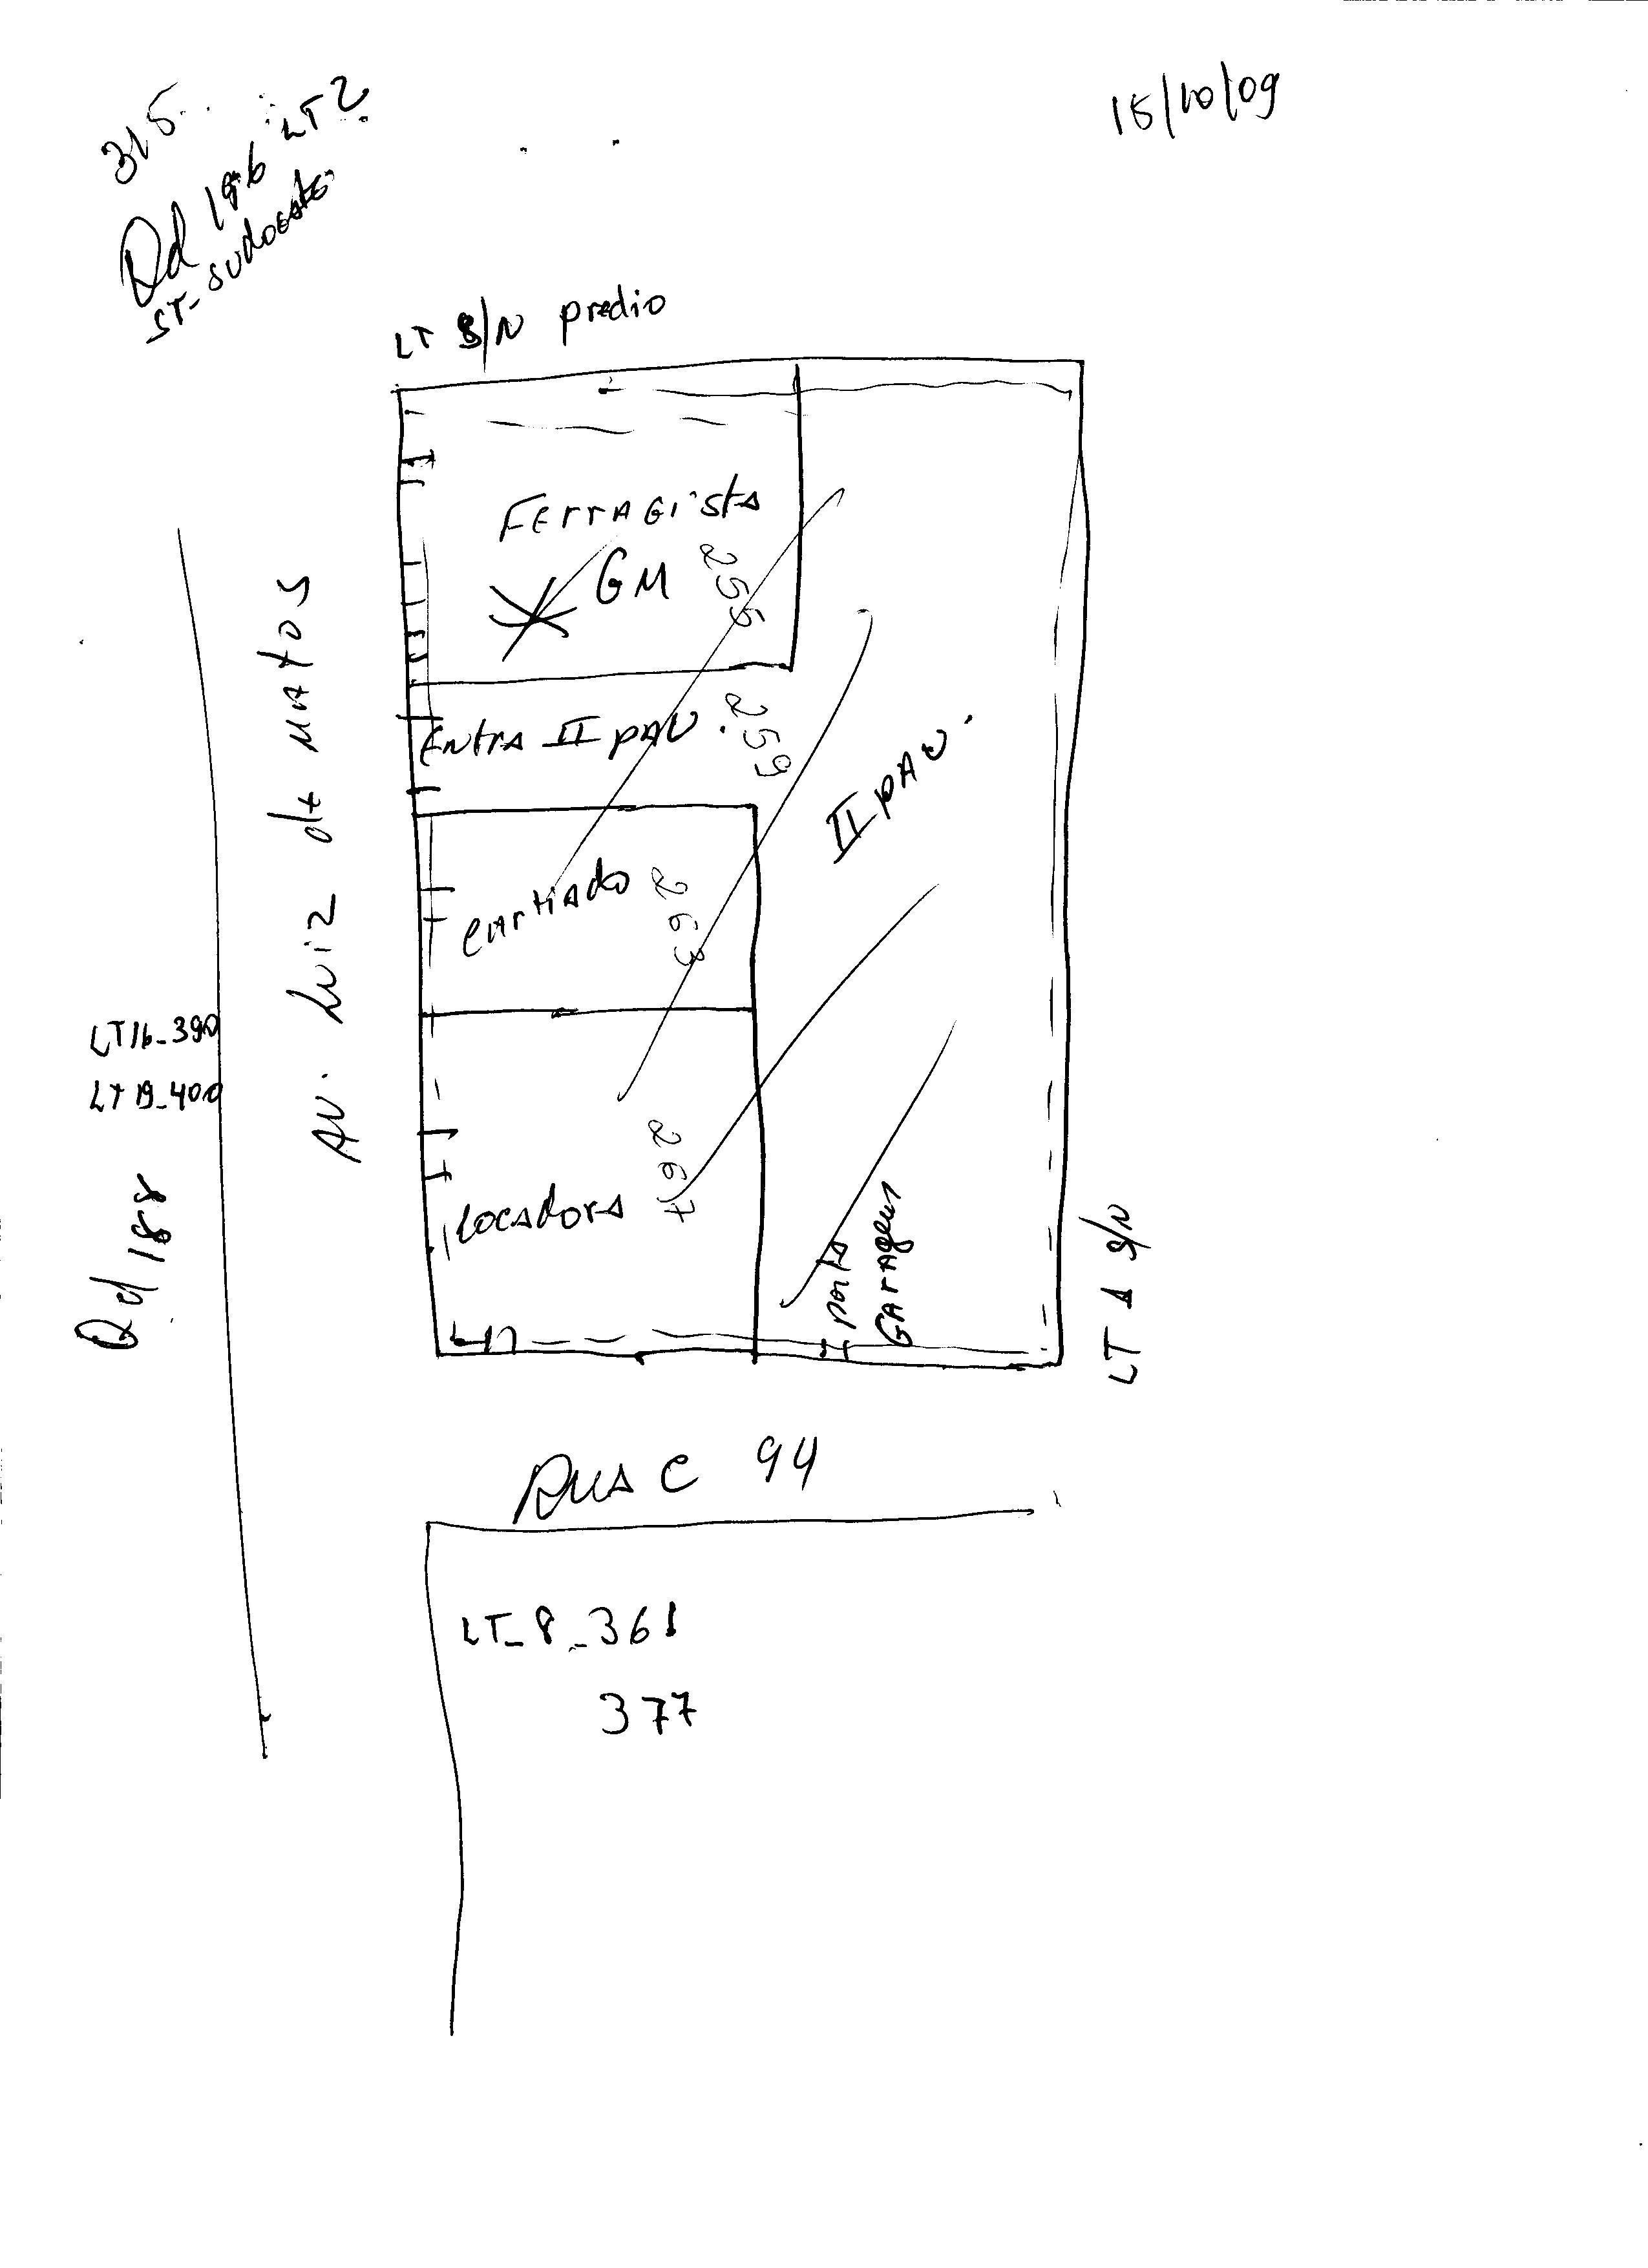 315
Qd 196 LT 2
ST- SUDOESTE
15/10/09
LT S/N predio
FErrAGistA
GM
255
ENtrA II pAV.
259
II pAV.
263
LOCADORA
267
portA
GArAgem
AV. Luiz de MAtos
LT 16-390
LT 19-400
Qd 188
LT 1 S/N
RUA C 94
LT-8-361
377